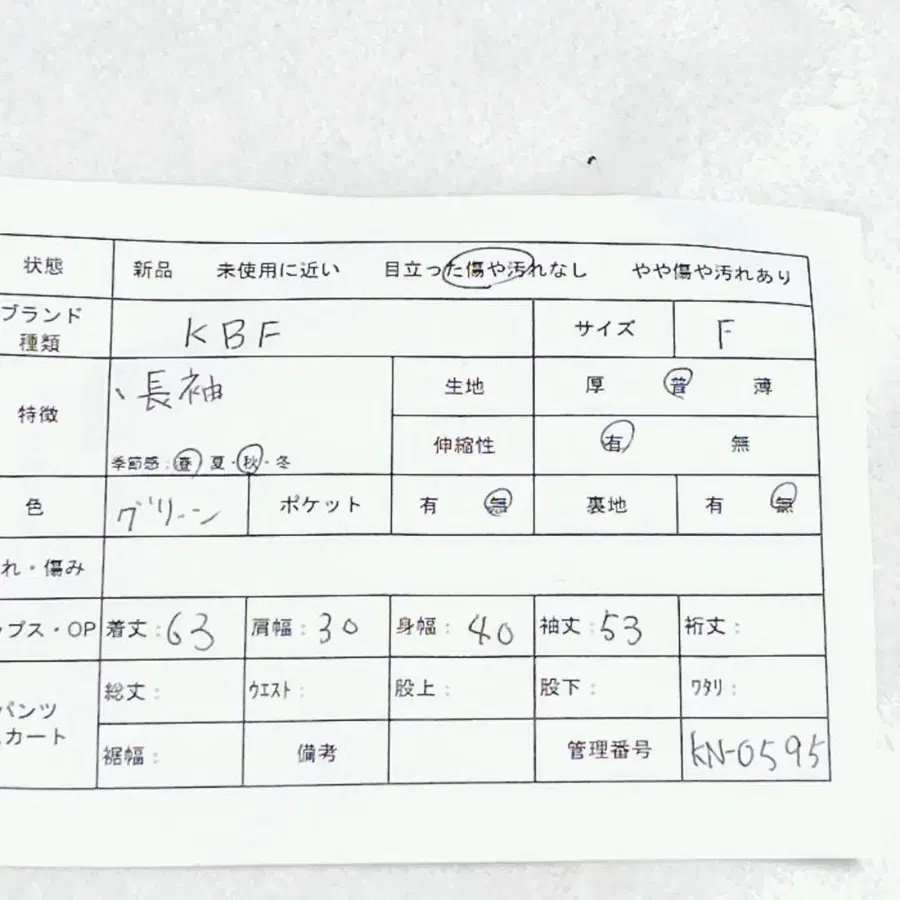 状態 新品 未使用に近い 目立った傷や汚れなし やや傷や汚れあり
ブランド
種類 KBF サイズ F
特徴 、長袖 生地 厚 普 薄
伸縮性 有 無
季節感：春・夏・秋・冬
色 グリーン ポケット 有 無 裏地 有 無
れ・傷み
ップス・OP 着丈：63 肩幅：30 身幅：40 袖丈：53 裄丈：
パンツ 総丈： ｳｴｽﾄ： 股上： 股下： ﾜﾀﾘ：
カート 裾幅： 備考 管理番号 KN-0595